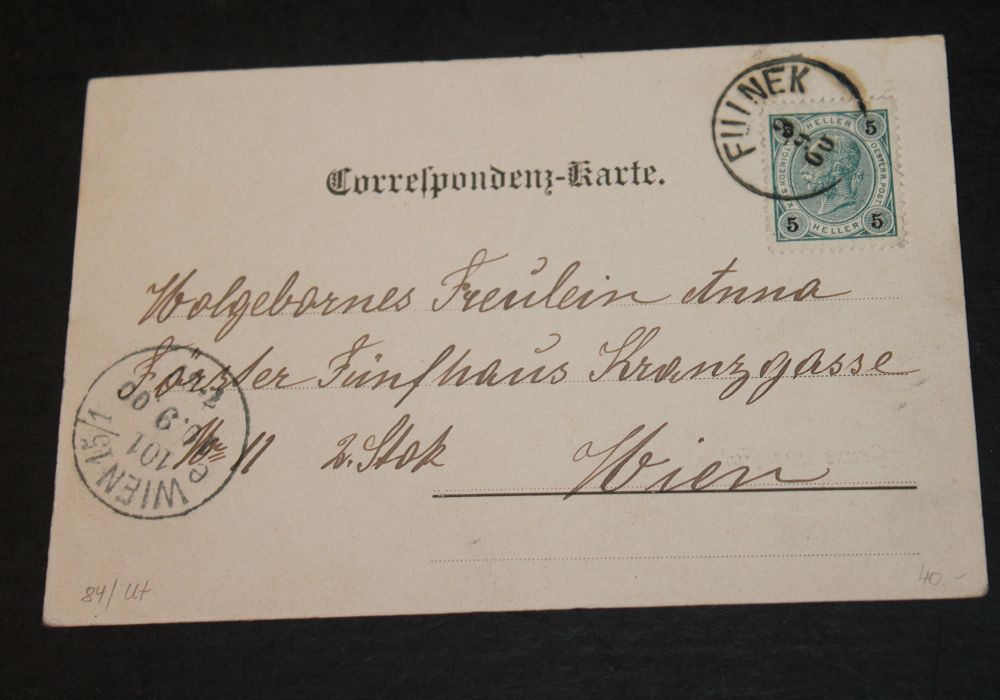 FULNEK
5 HELLER 5
OESTERR. POST.
5 HELLER 5
Correspondenz-Karte.
Wolgebornes Freulein Anna
Forster Fünfhaus Kranzgasse
Nr 11 2. Stok Wien
WIEN 15/1
101
9.00
84/
40.-